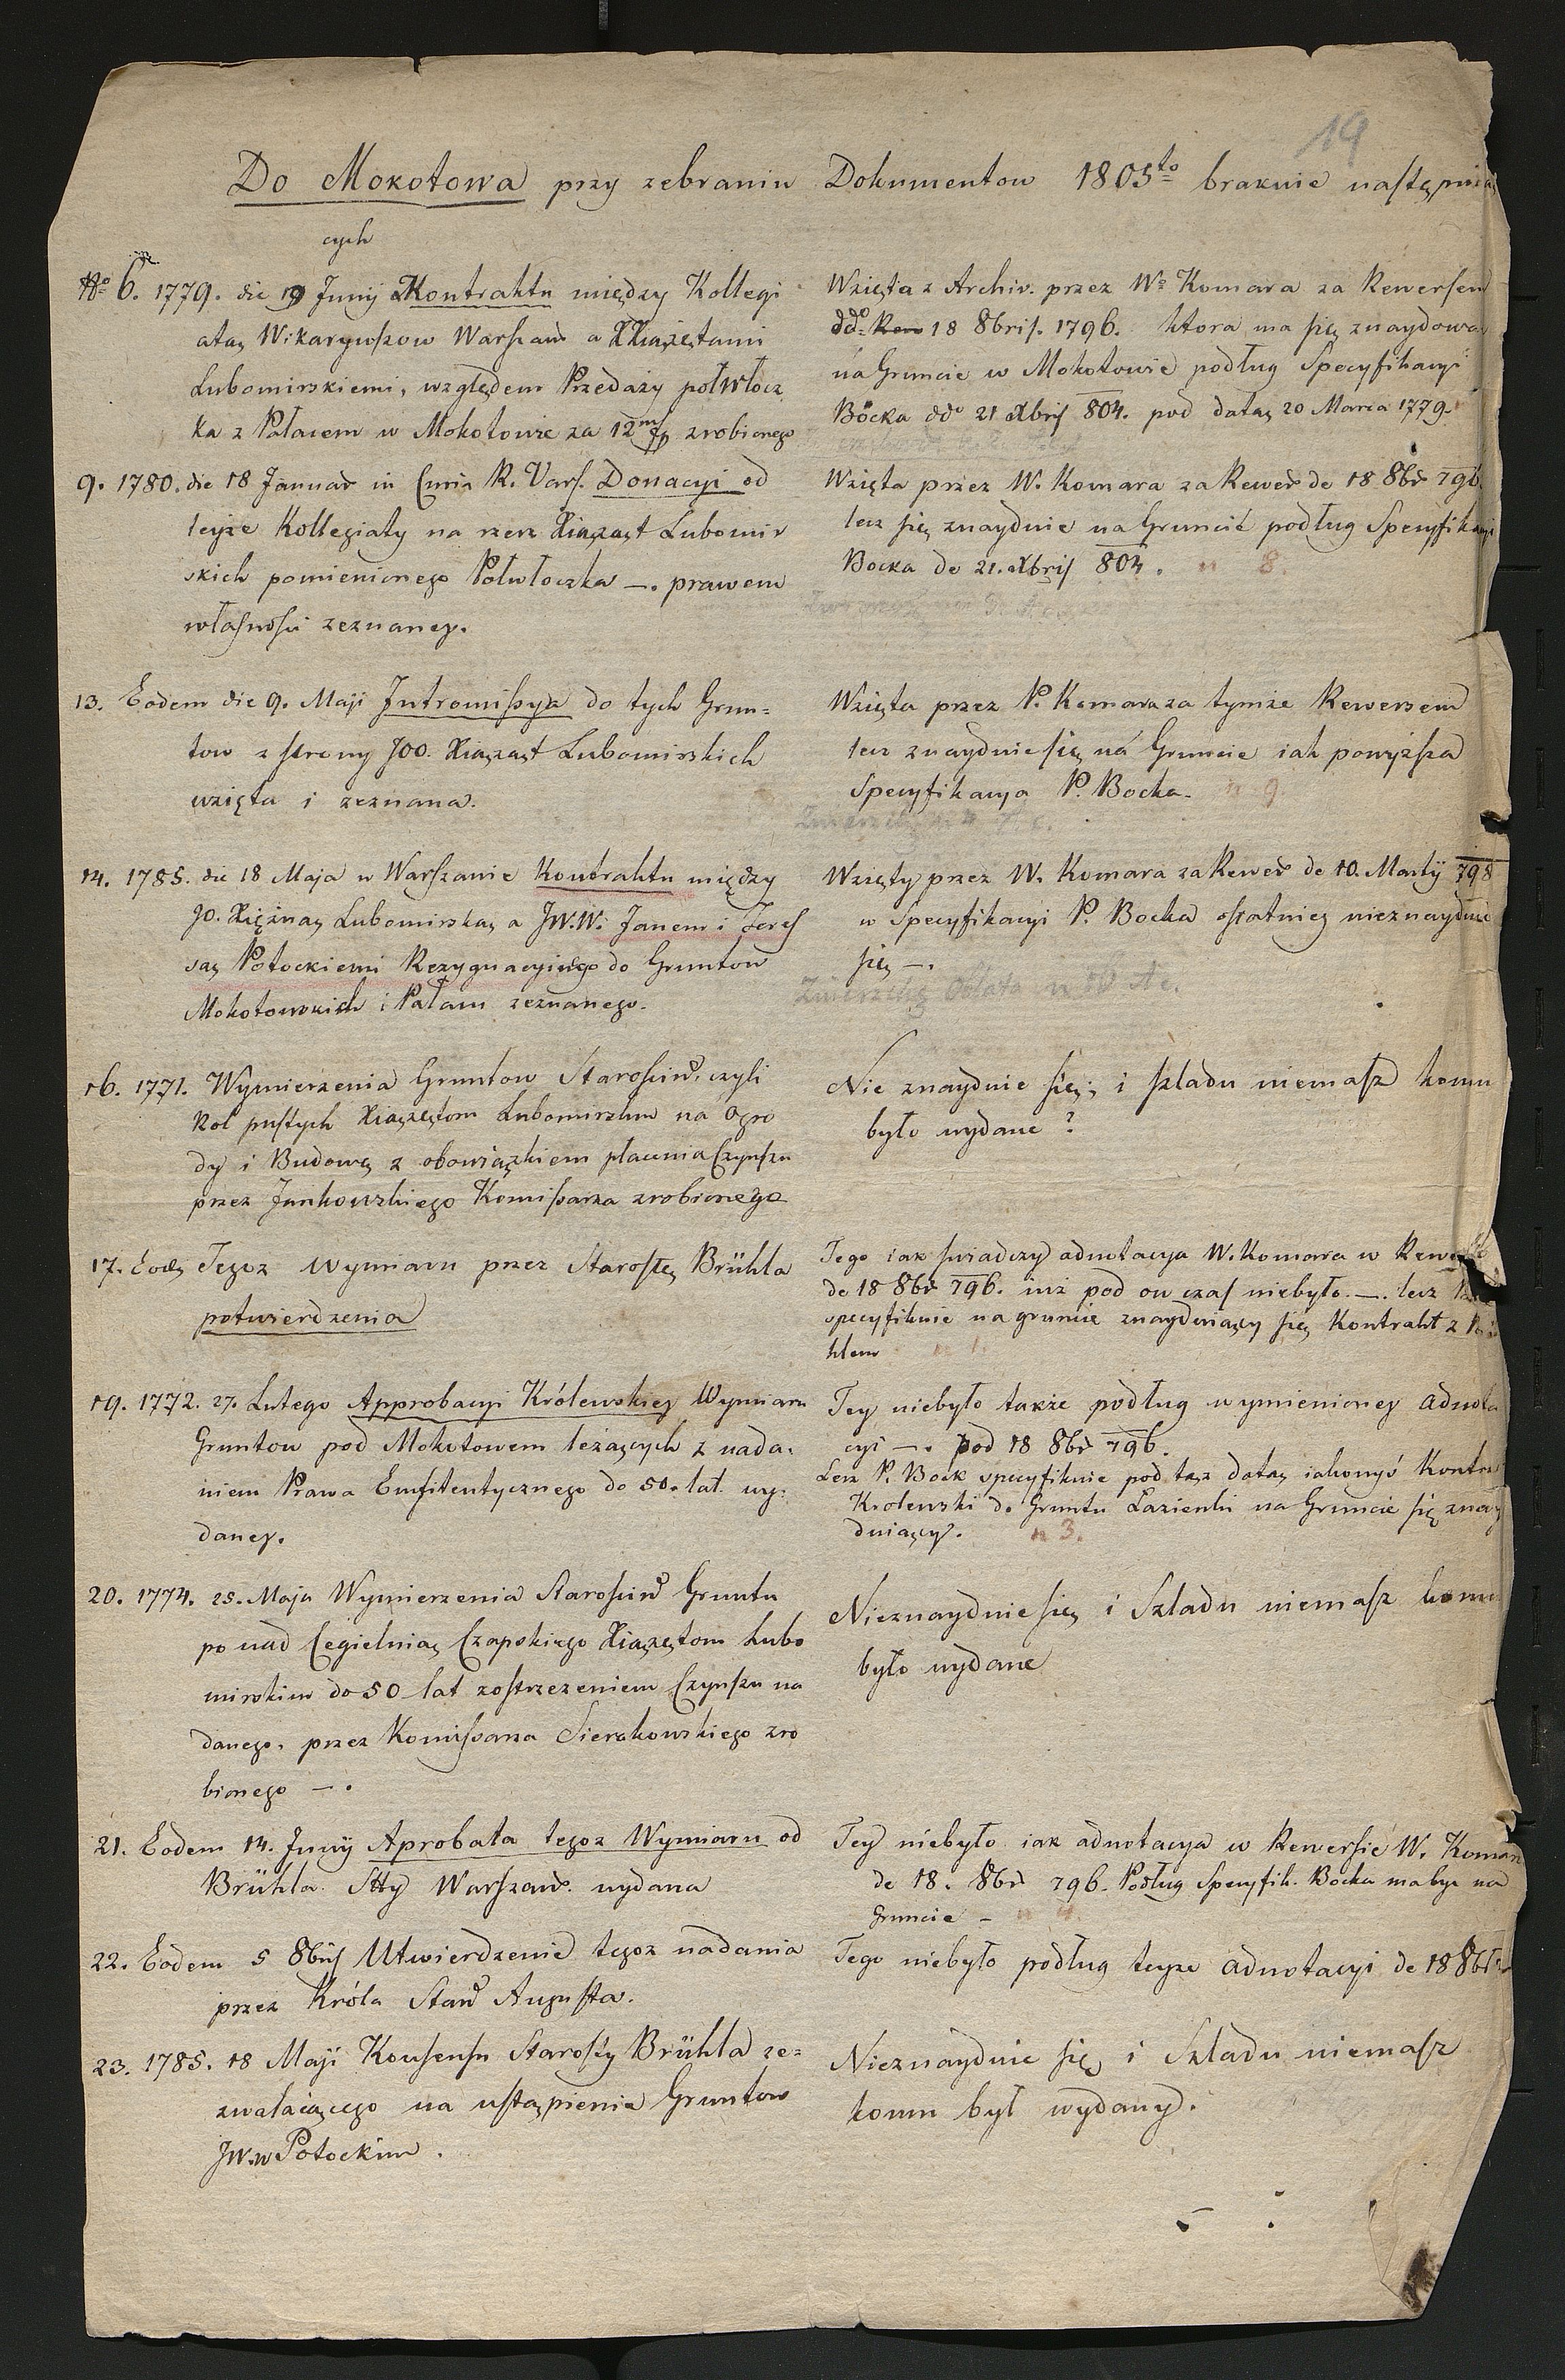 19
Do Mokotowa przy zebraniu Dokumentow 1805to braknie następuią
cych
No 6. 1779. die 19 Junij Kontraktu między Kollegi
atą Wikaryuszow Warszaw a XXiążętami
Lubomirskiemi, względem Przedaży połwłocz
ka z Pałacem w Mokotowie za 12m fp zrobionego
Wzięta z Archiv. przez Wo Komara za Rewersem
ddo 18 8bris. 1796. ktora ma się znaydowa
na Gruncie w Mokotowie podług Specyfikacyi
Böcka ddo 21 Xbris 804. pod datą 20 Marca 1779.
9. 1780. die 18 Januar in Curia R. Vars. Donacyi od
teyże Kollegiaty na rzecz Xiążąt Lubomir
skich pomienionego Połwłoczka —. prawem
własności zeznaney.
Wzięta przez W. Komara za Rewer de 18 8br 796.
lecz się znayduie na Gruncie podług Specyfikacyi
Bocka de 21. Xbris 804. n 8.
13. Eodem die 9. Maji Intromissya do tych Grun=
tow z strony JOO. Xiążąt Lubomirskich
wzięta i zeznana.
Wzięta przez P. Komara za tymże Rewersem
lecz znayduie się na Gruncie iak powyższa
Specyfikacya P. Bocka. n 9.
14. 1785. die 18 Maja w Warszawie Kontraktu między
JO. Xiężną Lubomirską a JW.W. Janem i Teres
są Potockiemi Rezygnacyinego do Gruntow
Mokotowskich i Pałacu zeznanego.
Wzięty przez W. Komara za Rewer de 10. Martij 798
w Specyfikacyi P. Bocka ostatniey nieznayduie
się —.
Oblata n Ac.
16. 1771. Wymierzenia Gruntow Starościn. czyli
Rol pustych Xiążętom Lubomirskim na Ogro
dy i Budowę z obowiązkiem płacenia Czynszu
przez Jankowskiego Komissarza zrobionego
Nie znayduie się; i szladu niemasz komu
było wydane?
17. Eod. Tegoz Wymiaru przez Starostę Brühla
potwierdzenia
Tego iak swiadczy adnotacya W. Komara w Rewer
de 18 8br 796. iuż pod on czas niebyło. —. lecz
specyfikuie na gruncie znayduiący się Kontrakt z
hlem n 1.
19. 1772. 27. Lutego Approbacyi Królewskiey Wymiaru
Gruntow pod Mokotowem leżących z nada-
niem Prawa Emfiteutycznego do 50. lat. wy-
daney.
Tey niebyło także podług wymienioney adnota
cyi —. pod 18 8br 796.
Lecz P. Bock specyfikuie pod tąż datą iakowyś Kontra
Krolewski do Gruntu Łazienki na Gruncie się znay
duiący. n 3.
20. 1774. 25. Maja Wymierzenia Starościn Gruntu
po nad Cegielnią Czapskiego Xiążętom Lubo
mirskim do 50 lat zostrzezeniem Czynszu na
danego. przez Komissarza Sierakowskiego zro
bionego —.
Nieznayduie się i Szladu niemasz komu
było wydane
21. Eodem 14. Junij Aprobata tegoz Wymiaru od
Brühla Stty Warszaw. wydana
Tey niebyło iak adnotacya w Rewersie W. Komar
de 18. 8br 796. Podług Specyfik. Bocka ma byc na
Gruncie — n 4.
22. Eodem 5 8bris Utwierdzenie tegoz nadania
przez Króla Stan Augusta.
Tego niebyło podług teyże adnotacyi de 18 8br
23. 1785. 18 Maji Konsensu Starosty Brühla ze=
zwalaiącego na ustąpienie Gruntow
JW.W Potockim.
Nieznayduie się i Szladu niemasz
komu był wydany.